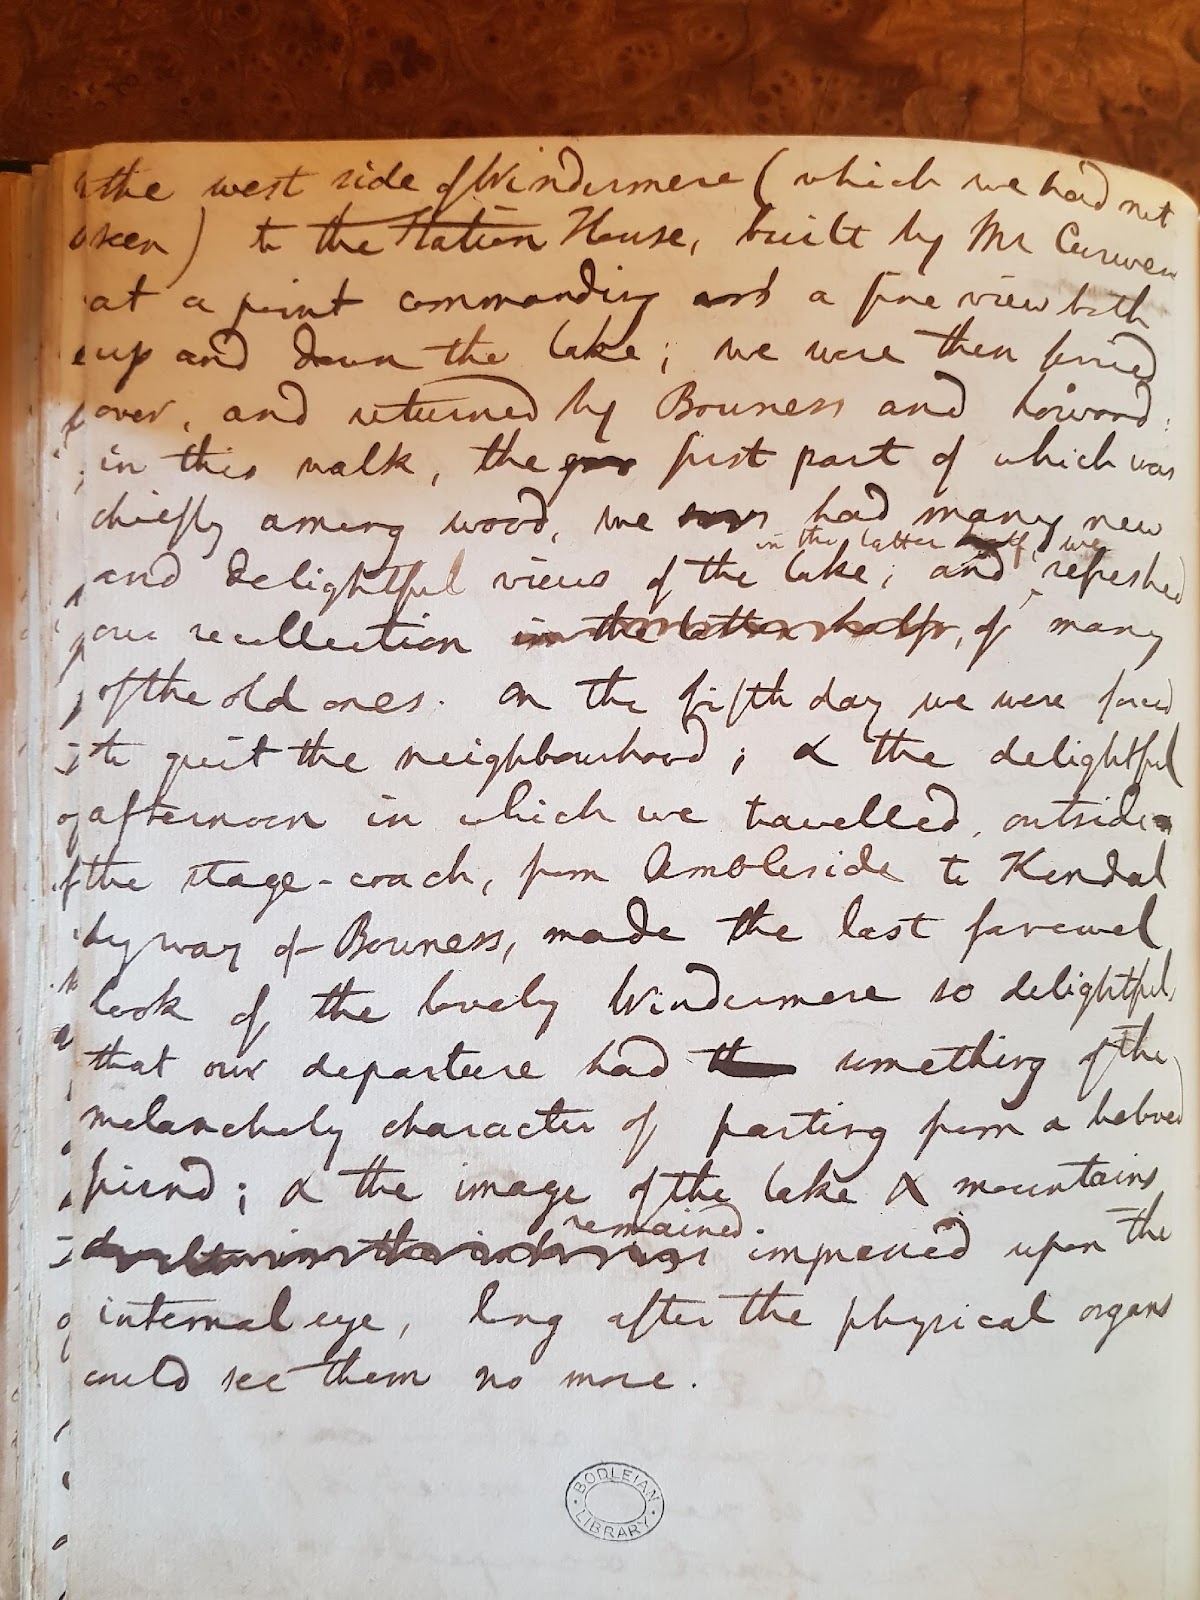 the west side of Windermere (which we had not
seen) to the Station House, built by Mr Curwen
at a point commanding a fine view both
up and down the lake; we were then ferried
over, and returned by Bowness and homeward:
in this walk, the first part of which was
chiefly among wood, we had many new
in the latter half, we
and delightful views of the lake; and refreshed
our recollection in the latter half, of many
of the old ones. On the fifth day we were forced
to quit the neighbourhood; & the delightful
afternoon in which we travelled, outside
the stage-coach, from Ambleside to Kendal
by way of Bowness, made the last farewel
look of the lovely Windermere so delightful,
that our departure had something of the
melancholy character of parting from a beloved
friend; & the image of the lake & mountains
remained
impressed upon the
internal eye, long after the physical organs
could see them no more.
BODLEIAN
LIBRARY